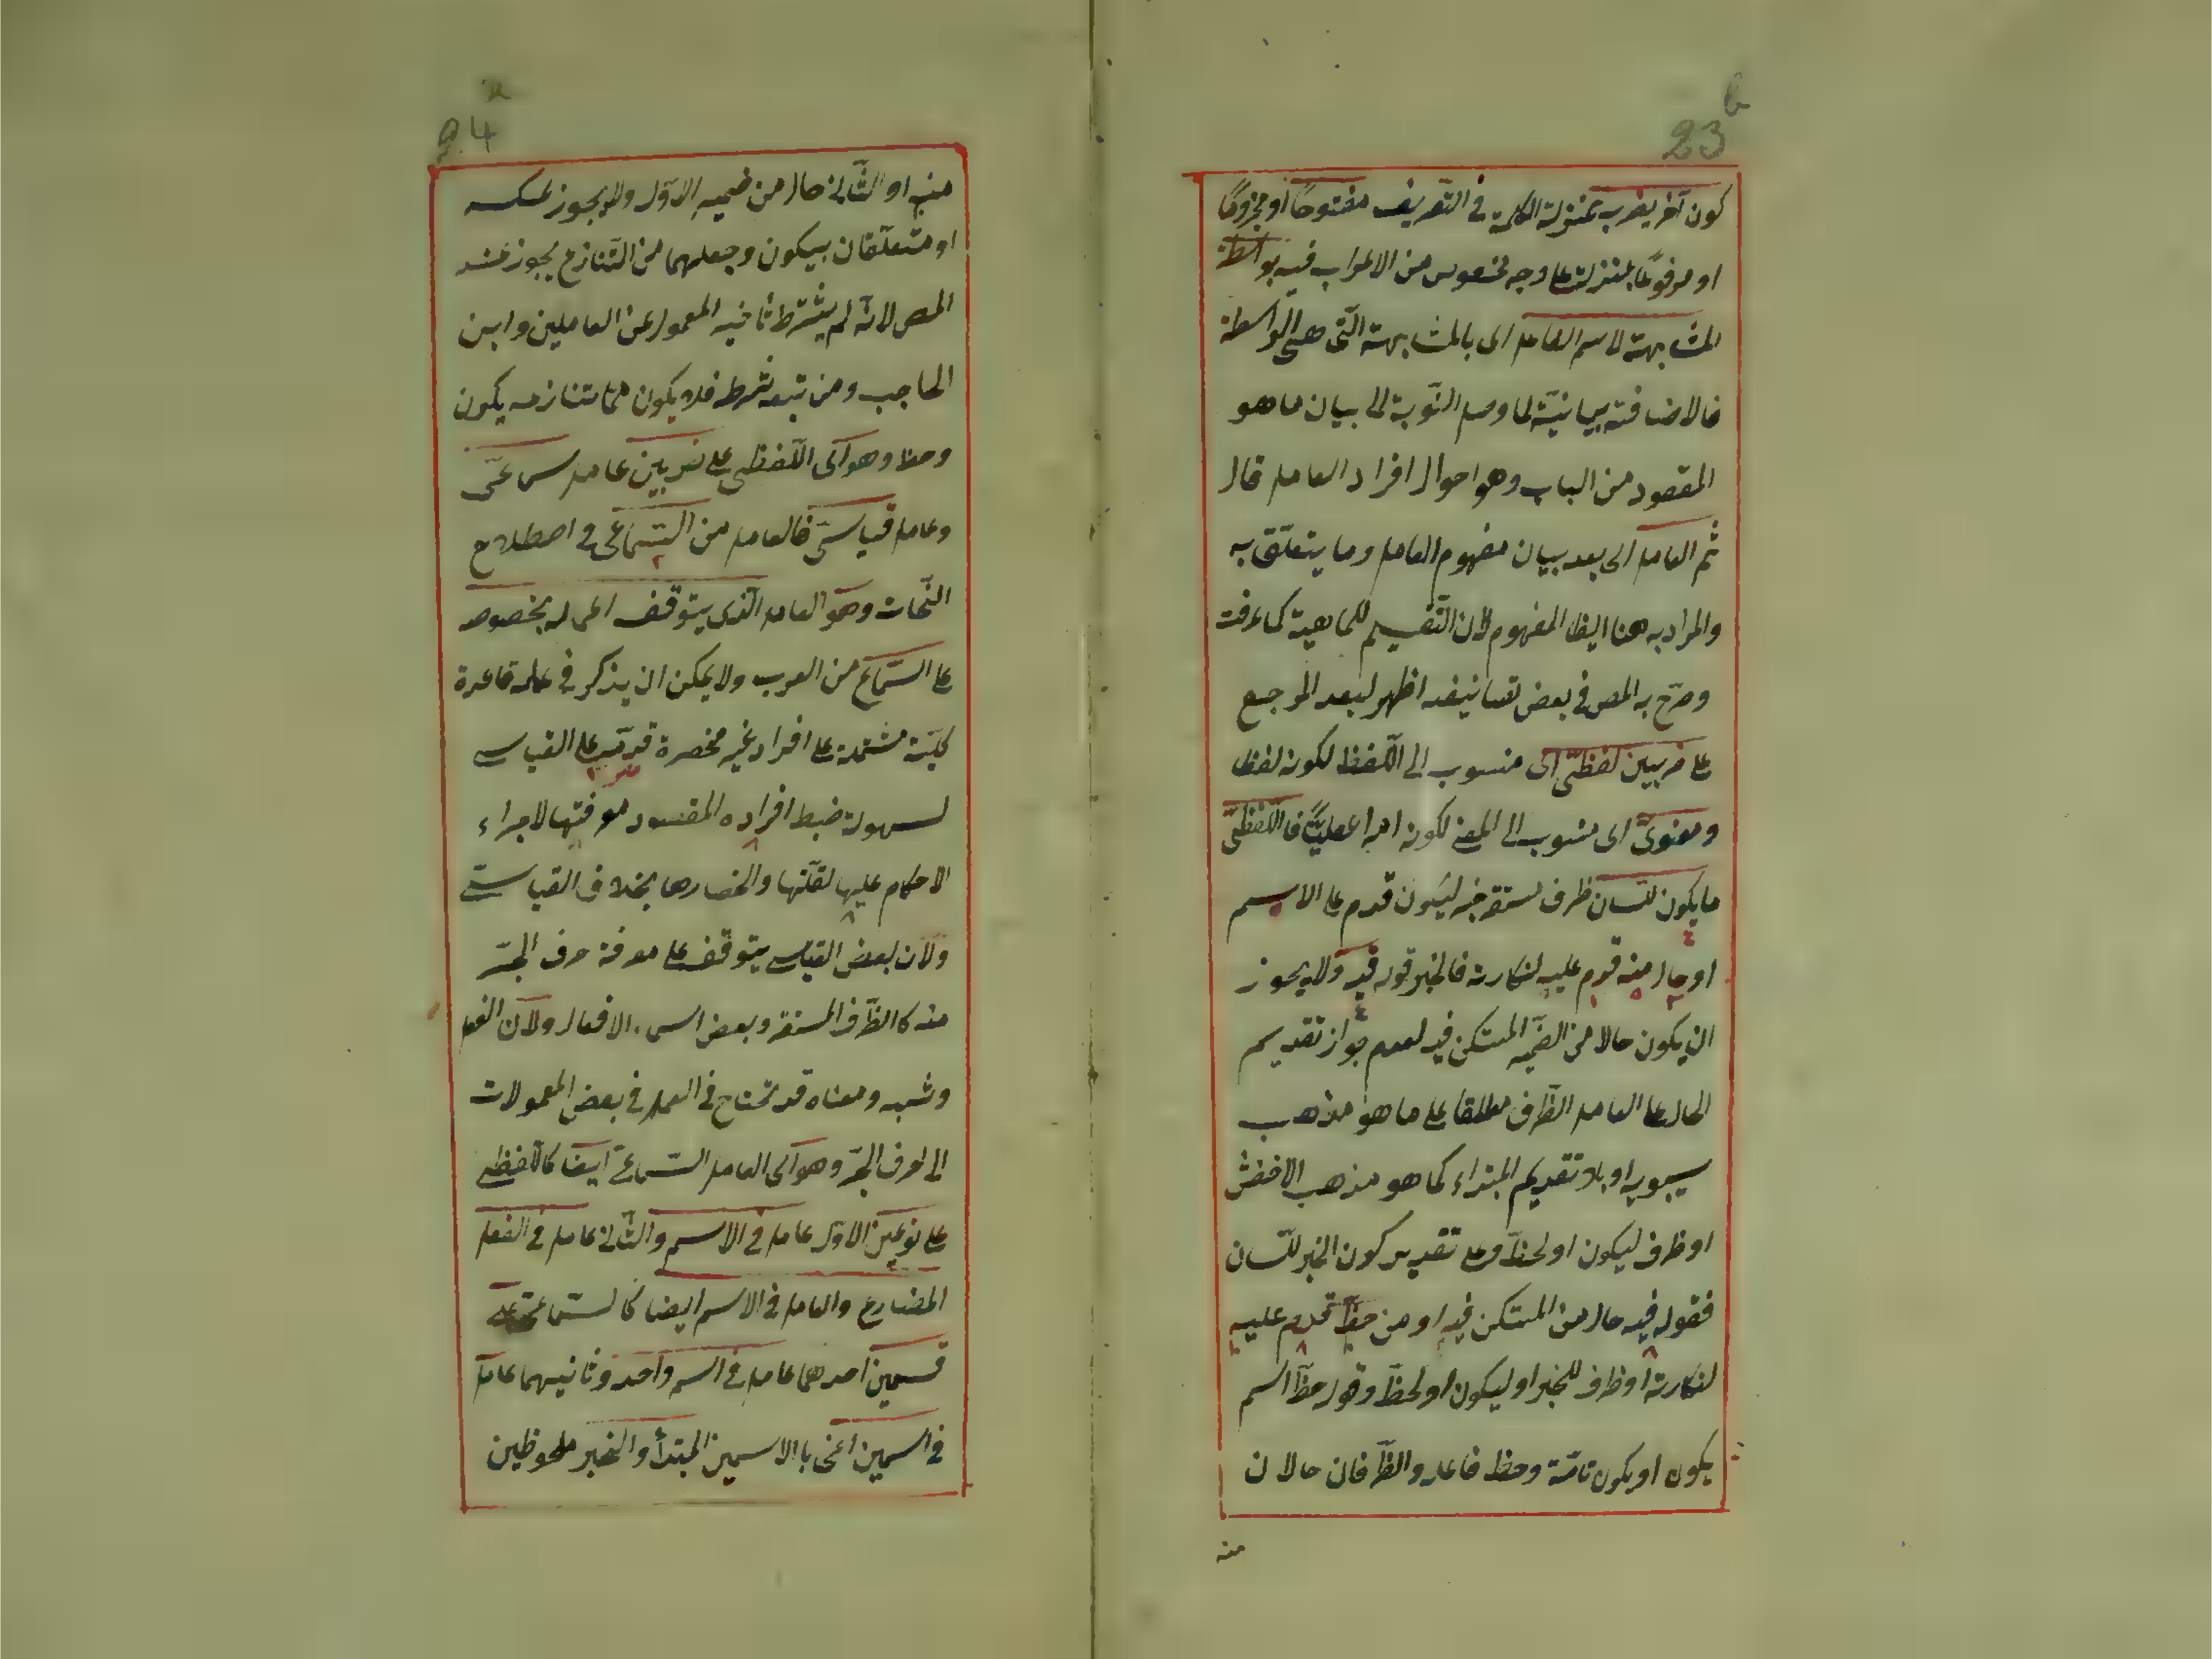 23 b
كون آخر يضرب بمنزلة الكلمة في التعريف مفتوحًا او مجزومًا
او مرفوعًا بمنزلة على وجه مخصوص من الاعراب فيه بواسطة
المشابهة لاسم الفاعل اى بالمشابهة الّتى هى الواسطة
فالاضافة بيانيّة لما وصل النّوبة الى بيان ما هو
المقصود من الباب وهو احوال افراد العامل قال
ثم العامل اى بعد بيان مفهوم العامل وما يتعلّق به
والمراد به هنا ايضا المفهوم لان التّقسيم للماهية كما عرفت
وصرّح به المص في بعض تصانيفه اظهر لبعد المرجع
على ضربين لفظىّ اى منسوب الى اللّفظ لكونه لفظا
ومعنوىّ اى منسوب الى المعنى لكونه امرا عقليًّا فاللّفظىّ
ما يكون للّسان ظرف مستقر خبر ليكون قدم على الاسم
او حال منه قدم عليه لنكارته فالخبر قوله فيه ولا يجوز
ان يكون حالا من الضّمير المستكن فيه لعدم جواز تقديم
الحال على العامل الظّرف مطلقا على ما هو مذهب
سيبويه او بلا تقديم المبتداء كما هو مذهب الاخفش
او ظرف ليكون او لحظّ وعلى تقدير كون الخبر للّسان
فقوله فيه حال من المستكن فيه او من حظّ قدم عليه
لنكارته او ظرف للخبر او ليكون او لحظّ وقوله حظّ اسم
يكون او يكون تامّة وحظ فاعله والظّرفان حالان
منه
24 a
منه او الثّانى حال من ضمير الاوّل ولا يجوز عكسه
او متعلّقان بيكون وجعلهما من التّنازع يجوز عند
المص لانّه لم يشترط تأخير المعمول عن العاملين وابن
الحاجب ومن تبعه شرطه فلا يكون ممّا تنازعه يكون
وحظ وهو اى اللّفظى على ضربين عامل سماعىّ
وعامل قياسىّ فالعامل من السّماعى في اصطلاح
النّحات وهو العامل الّذى يتوقف اعماله بخصوصه
على السّماع من العرب ولا يمكن ان يذكر في عمله قاعدة
كليّة مشتملة على افراد غير منحصرة قدّمه على القياسى
لسهولة ضبط افراده المقصود معرفتها لاجراء
الاحكام عليها لقلّتها وانحصارها بخلاف القياسىّ
ولان بعض القياسى يتوقف على معرفة حرف الجرّ
منه كالظّرف المستقر وبعض اسماء الافعال ولان الفعل
وشبهه ومعناه قد تحتاج في العمل في بعض المعمولات
الى حرف الجرّ وهو اى العامل السّماعىّ ايضا كاللّفظى
على نوعين الاوّل عامل في الاسم والثّانى عامل في الفعل
المضارع والعامل في الاسم ايضا كالسّماعىّ على
قسمين احدهما عامل في اسم واحد وثانيهما عامل
في اسمين اعنى بالاسمين المبتدأ والخبر ملحوظين